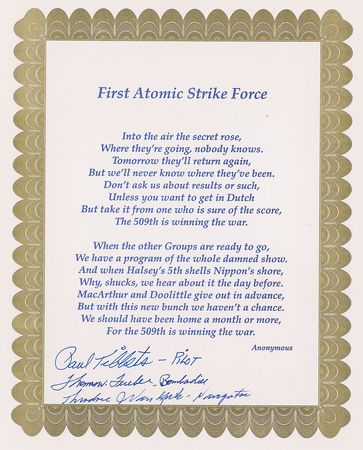 First Atomic Strike Force
Into the air the secret rose,
Where they're going, nobody knows.
Tomorrow they'll return again,
But we'll never know where they've been.
Don't ask us about results or such,
Unless you want to get in Dutch
But take it from one who is sure of the score,
The 509th is winning the war.
When the other Groups are ready to go,
We have a program of the whole damned show.
And when Halsey's 5th shells Nippon's shore,
Why, shucks, we hear about it the day before.
MacArthur and Doolittle give out in advance,
But with this new bunch we haven't a chance.
We should have been home a month or more,
For the 509th is winning the war.
Anonymous
Paul Tibbets - Pilot
Thomas Ferebee - Bombardier
Theodore J Van Kirk - Navigator